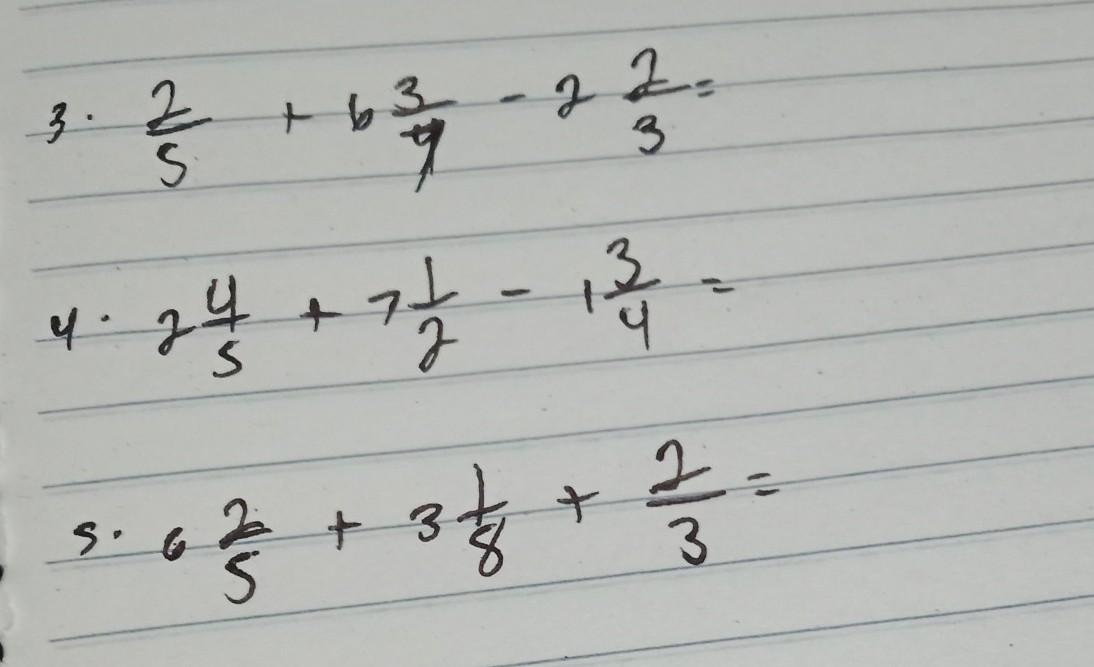 3. 2/5 + 6 3/7 - 2 2/3 =
4. 2 4/5 + 7 1/2 - 1 3/4 =
5. 6 2/5 + 3 1/8 + 2/3 =